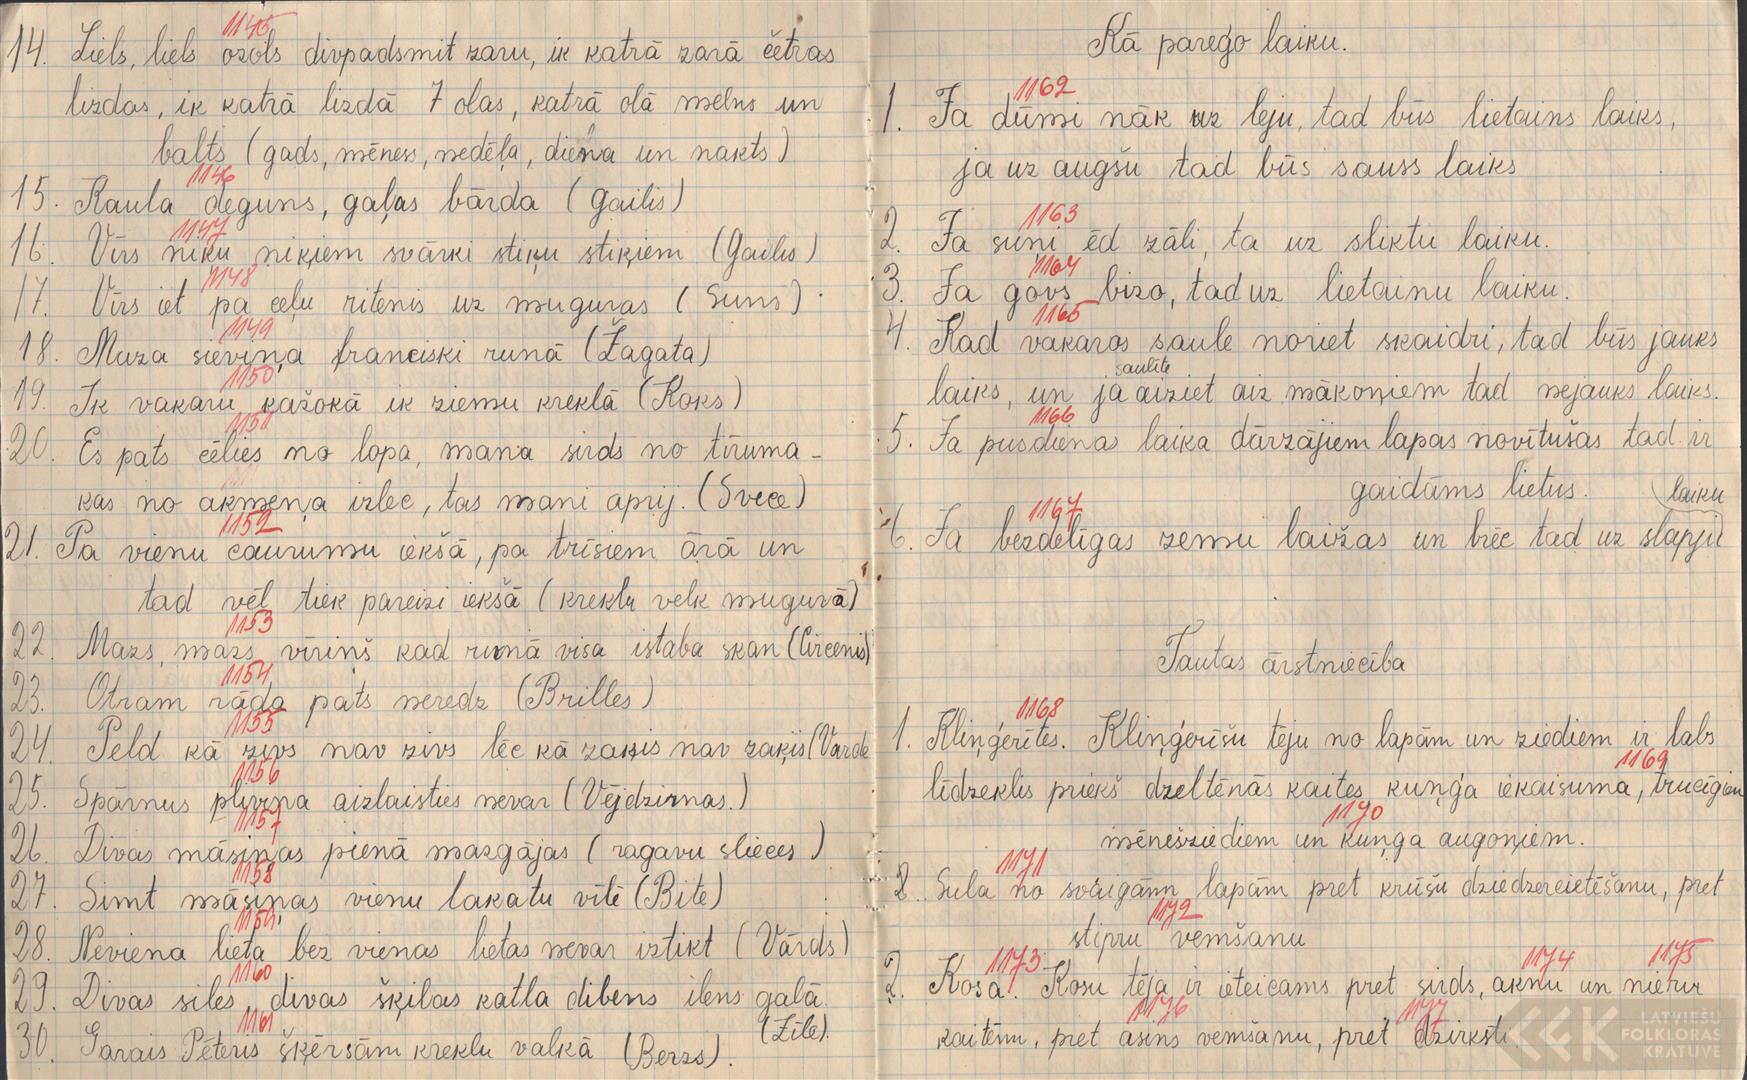 1145
14. Liels, liels ozols divpadsmit zaru, ik katrā zarā četras
lizdas, ik katrā lizdā 7 olas, katrā olā melns un
balts (gads, mēness, nedēļa, diena un nakts)
1146
15. Kaula deguns, gaļas bārda (Gailis)
1147
16. Vīrs niķu niķiem svārki stiķu stiķiem (Gailis)
1148
17. Vīrs iet pa ceļu ritenis uz muguras (Suns)
1149
18. Maza sieviņa franciski runā (Žagata)
1150
19. Ik vakaru kažokā ik ziemu kreklā (Koks)
1151
20. Es pats cēlies no lopa, mana sirds no tīruma -
kas no akmeņa izlec, tas mani aprij. (Svece)
1152
21. Pa vienu caurumu iekšā, pa trīsiem ārā un
tad vēl tiek pareizi iekšā (kreklu velk mugurā)
1153
22. Mazs, mazs vīriņš kad runā visa istaba skan (Circenis)
1154
23. Otram rāda pats neredz (Brilles)
1155
24. Peld kā zivs nav zivs lēc kā zaķis nav zaķis (Varde
1156
25. Spārnus plivina aizlaisties nevar (Vējdzirnas.)
1157
26. Divas māsiņas pienā mazgājas (ragavu slieces)
1158
27. Simt māsiņas vienu lakatu vīlē (Bite)
1159
28. Neviena lieta bez vienas lietas nevar iztikt (Vārds)
1160
29. Divas siles, divas šķilas katla dibens ilens galā
(Zīle).
1161
30. Garais Pēteris šķērsām kreklu valkā (Berzs).
Kā parego laiku.
1162
1. Ja dūmi nāk uz leju, tad būs lietains laiks,
ja uz augšu tad būs sauss laiks
1163
2. Ja suņi ēd zāli, ta uz sliktu laiku.
1164
3. Ja govs bizo, tad uz lietainu laiku.
1165
4. Kad vakaros saule noriet skaidri, tad būs jauks
saulīte
laiks, un ja aiziet aiz mākoņiem tad nejauks laiks.
1166
5. Ja pusdienas laika dārzājiem lapas novītušas tad ir
gaidāms lietus.
laiku
1167
6. Ja bezdelīgas zemu laižas un brēc tad uz slapju
Tautas ārstniecība
1168
1. Kliņģerītes. Kliņģerīšu tēju no lapām un ziediem ir labs
1169
līdzeklis priekš dzeltēnās kaites, kuņģa iekaisuma, trucīgiem
1170
mēnešziediem un kuņģa augoņiem.
1171
2. Sula no svaigām lapām pret krūšu dziedzereietēšanu, pret
1172
stipru vemšanu
1173 1174 1175
2. Kosa. Kosu tēja ir ieteicams pret sirds, aknu un nierur
1176 1177
kaitēm, pret asins vemšanu, pret dzirksti
LATVIEŠU
FOLKLORAS
KRĀTUVE